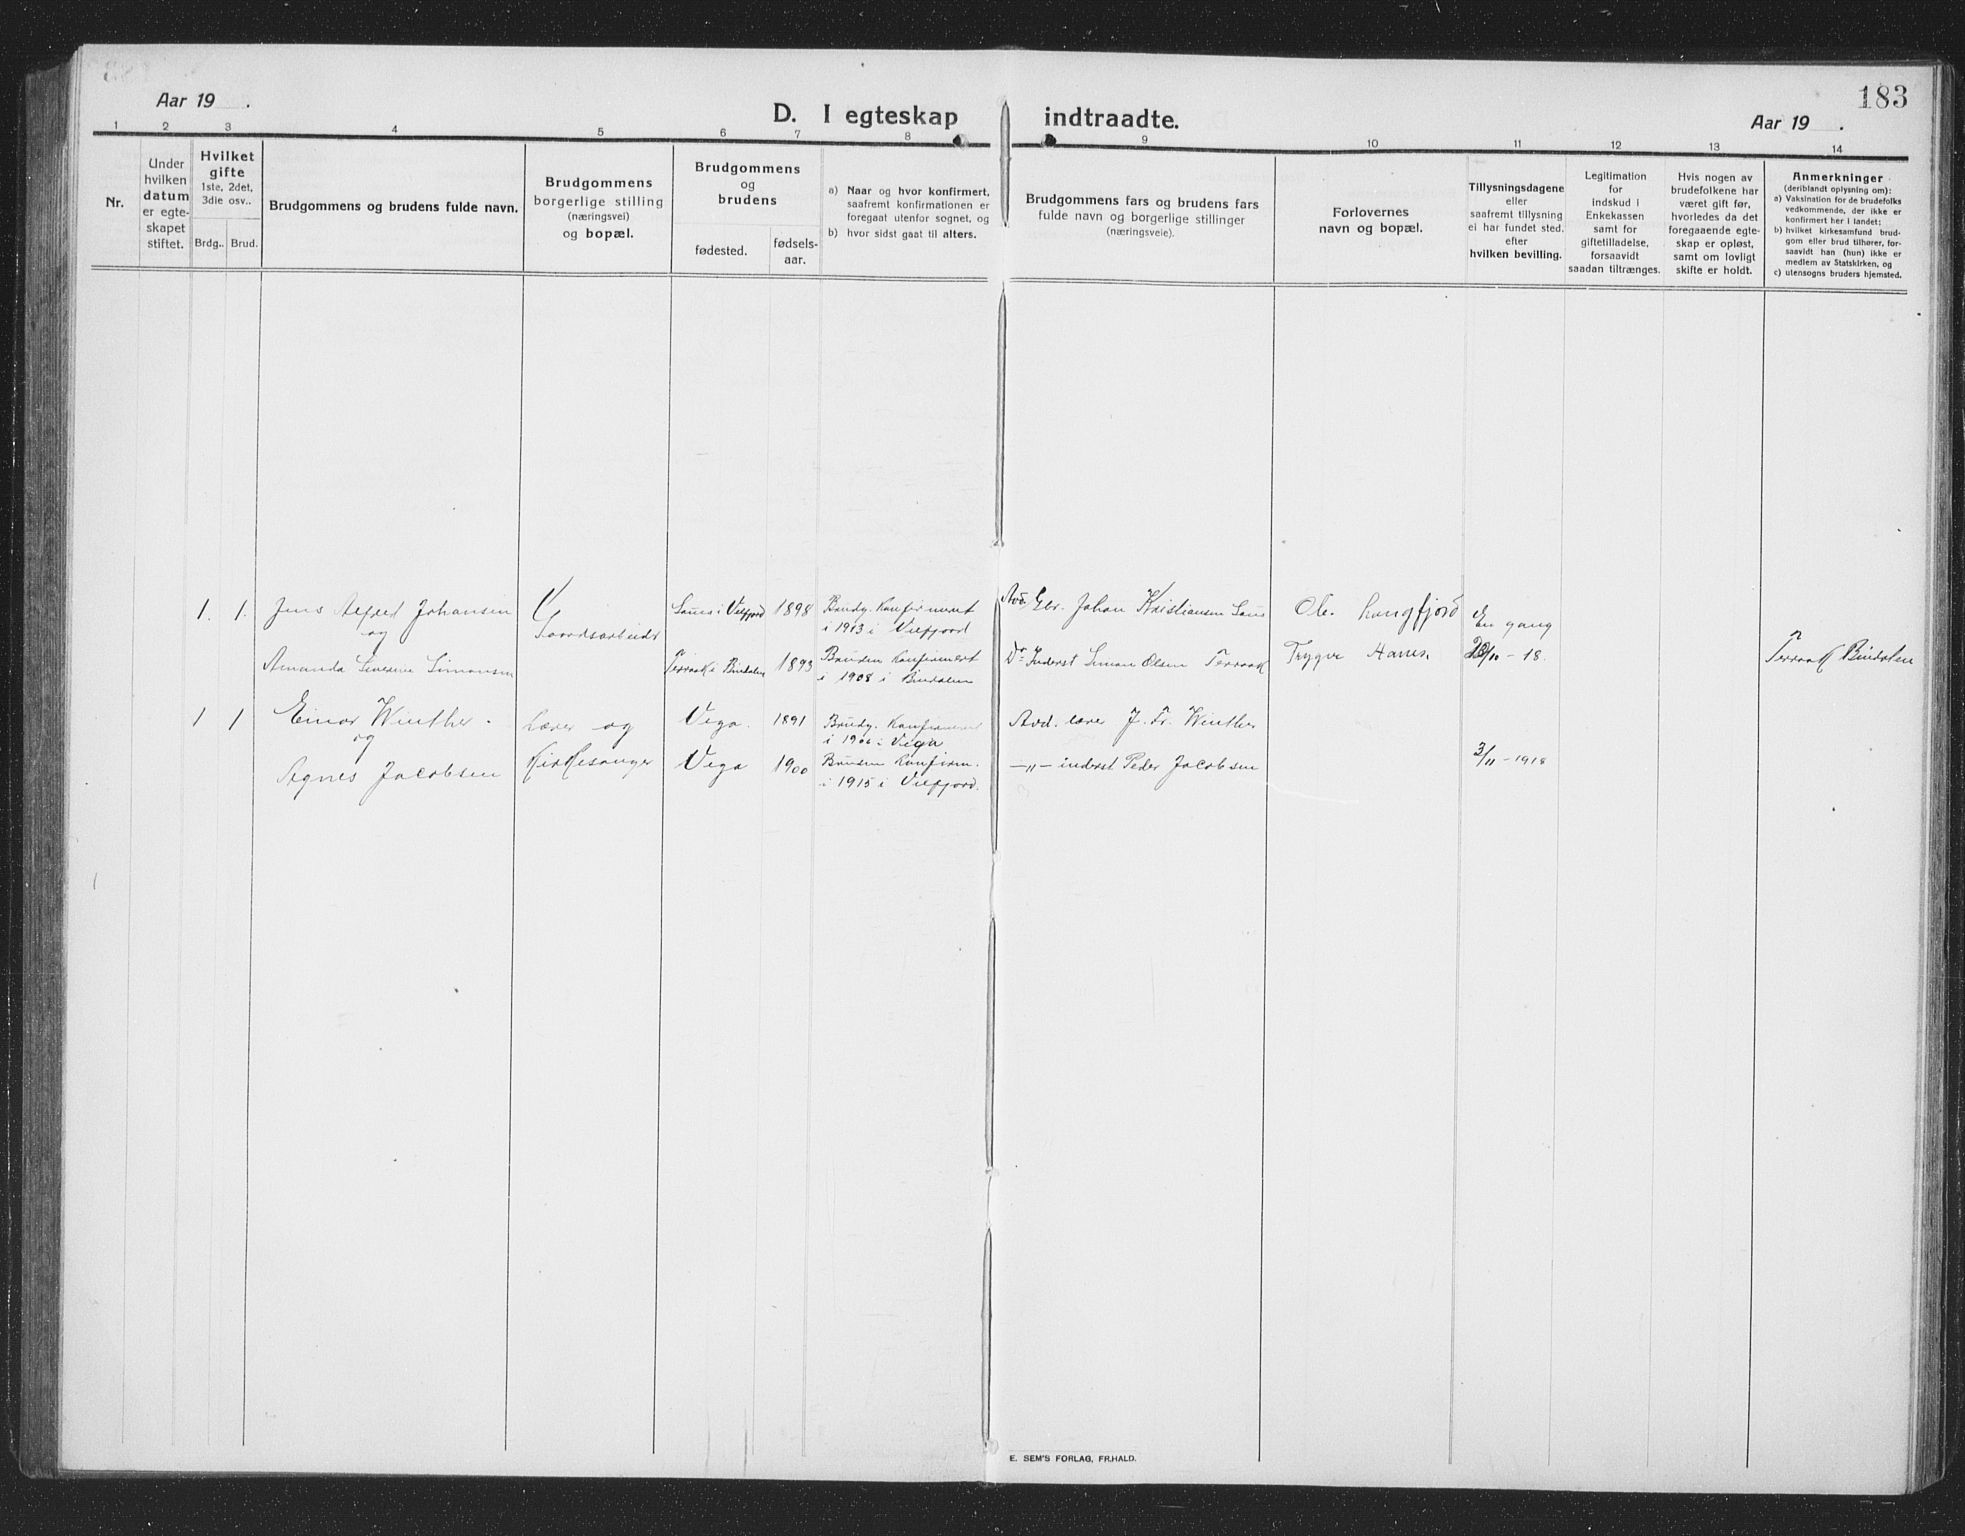 183
Aar 19 .
D. I egteskap indtraadte.
Aar 19 .
1 2 3 4 5 6 7 8 9 10 11 12 13 14
Nr.
Under
hvilken
datum
er egte-
skapet
stiftet.
Hvilket
gifte
1ste, 2det,
3die osv..
Brdg.. Brud.
Brudgommens og brudens fulde navn.
Brudgommens
borgerlige stilling
(næringsvei)
og bopæl.
Brudgommens
og
brudens
fødested.
fødsels-
aar.
a) Naar og hvor konfirmert,
saafremt konfirmationen er
foregaat utenfor sognet, og
b) hvor sidst gaat til alters.
Brudgommens fars og brudens fars
fulde navn og borgerlige stillinger
(næringsveie).
Forlovernes
navn og bopæl.
Tillysningsdagene
eller
saafremt tillysning
ei har fundet sted,
efter
hvilken bevilling.
Legitimation
for
indskud i
Enkekassen
samt for
giftetilladelse,
forsaavidt
saadan tiltrænges.
Hvis nogen av
brudefolkene har
været gift før,
hvorledes da det
foregaaende egte-
skap er opløst,
samt om lovligt
skifte er holdt.
Anmerkninger
(deriblandt oplysning om):
a) Vaksination for de brudefolks
vedkommende, der ikke er
konfirmert her i landet;
b) hvilket kirkesamfund brud-
gom eller brud tilhører, for-
saavidt han (hun) ikke er
medlem av Statskirken, og
c) utensogns bruders hjemsted.
1. 1. Jens Alfred Johansen
og
Amanda Severine Simonsen
Gaardsarbeider
Saus i Velfjord 1898
Terraak i Bindalen 1893
Brudg. Konfirmert
i 1913 i Velfjord
Bruden Konfirmert
i 1908 i Bindalen
Avd. Gbr. Johan Kristiansen Saus
Do Inderst Simon Olsen Terraak
Ole Langfjord
Trygve Hansen
En gang
20/10 - 18.
Terraak Bindalen
1 1 Einar Winther
og
Agnes Jacobsen
Lærer og
Kirkesanger
Vega. 1891
Vega 1900
Brudg. Konfirmert
i 1906 i Vega
Bruden Konfirm.
i 1915 i Velfjord.
Avd. lærer J. Fr. Winther
-„- inderst Peder Jacobsen
3/11 - 1918
E. SEM'S FORLAG, FR.HALD.